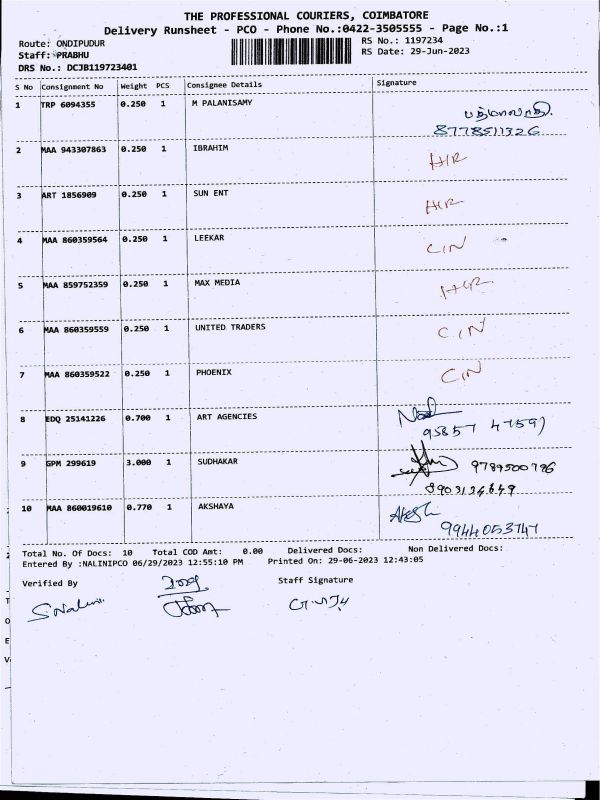 THE PROFESSIONAL COURIERS, COIMBATORE
Delivery Runsheet - PCO - Phone No.:0422-3505555 - Page No.:1
Route: ONDIPUDUR RS No.: 1197234
Staff: PRABHU RS Date: 29-Jun-2023
DRS No.: DCJB119723401
S No Consignment No Weight PCS Consignee Details Signature
1 TRP 6094355 0.250 1 M PALANISAMY
8778511326
2 MAA 943307863 0.250 1 IBRAHIM HIR
3 ART 1856909 0.250 1 SUN ENT HIR
4 MAA 860359564 0.250 1 LEEKAR CIN
5 MAA 859752359 0.250 1 MAX MEDIA HIR
6 MAA 860359559 0.250 1 UNITED TRADERS CIN
7 MAA 860359522 0.250 1 PHOENIX CIN
8 EDQ 25141226 0.700 1 ART AGENCIES
9 GPM 299619 3.000 1 SUDHAKAR
10 MAA 860019610 0.770 1 AKSHAYA
9944053747
Total No. Of Docs: 10 Total COD Amt: 0.00 Delivered Docs: Non Delivered Docs:
Entered By :NALINIPCO 06/29/2023 12:55:10 PM Printed On: 29-06-2023 12:43:05
Verified By Staff Signature
S.Nalini